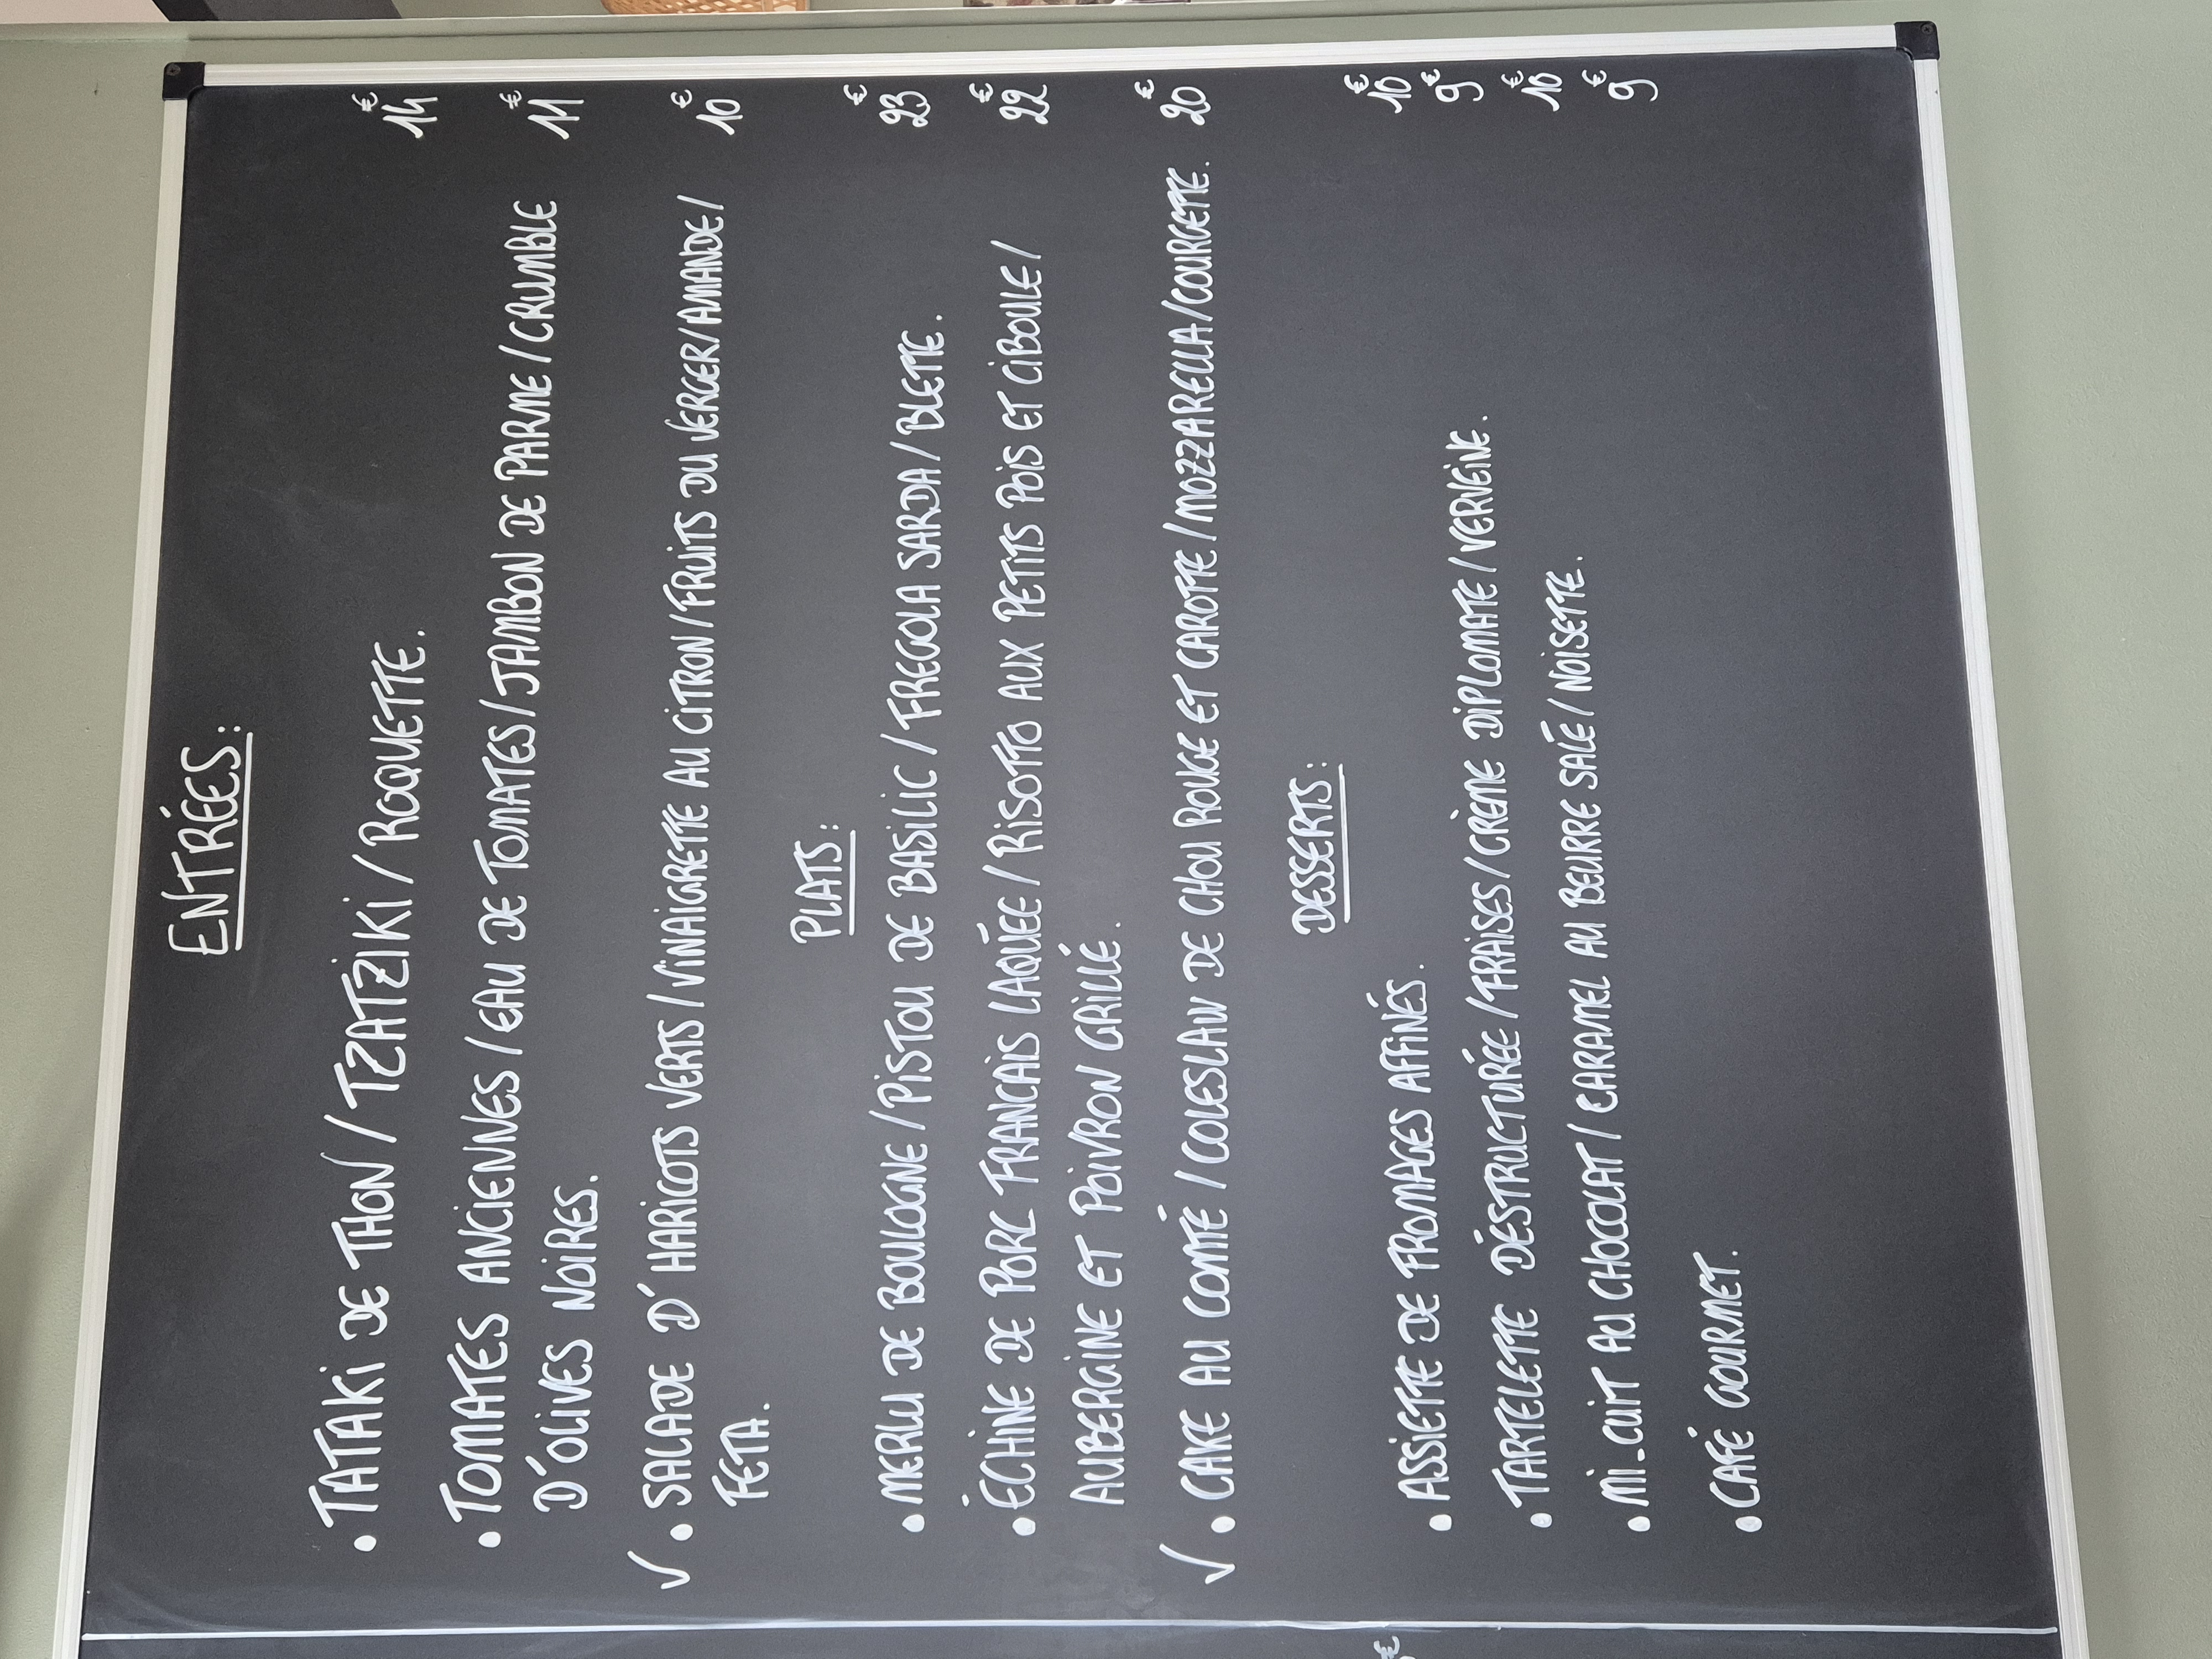 ENTRÉES:
• TATAKI DE THON / TZATZIKI / ROQUETTE. 14€
• TOMATES ANCIENNES / EAU DE TOMATES / JAMBON DE PARME / CRUMBLE 11€
D'OLIVES NOIRES.
V • SALADE D'HARICOTS VERTS / VINAIGRETTE AU CITRON / FRUITS DU VERGER / AMANDE / 10€
FETA.
PLATS:
• MERLU DE BOULOGNE / PISTOU DE BASILIC / FREGOLA SARDA / BLETTE. 23€
• ÉCHINE DE PORC FRANCAIS LAQUÉE / RISOTTO AUX PETITS POIS ET CIBOULE / 22€
AUBERGINE ET POIVRON GRILLÉ.
V • CAKE AU COMTÉ / COLESLAW DE CHOU ROUGE ET CAROTTE / MOZZARELLA / COURGETTE. 20€
DESSERTS:
• ASSIETTE DE FROMAGES AFFINÉS. 10€
• TARTELETTE DÉSTRUCTURÉE / FRAISES / CRÈME DIPLOMATE / VERVEINE. 9€
• MI-CUIT AU CHOCOLAT / CARAMEL AU BEURRE SALÉ / NOISETTE. 10€
• CAFÉ GOURMET. 9€
€